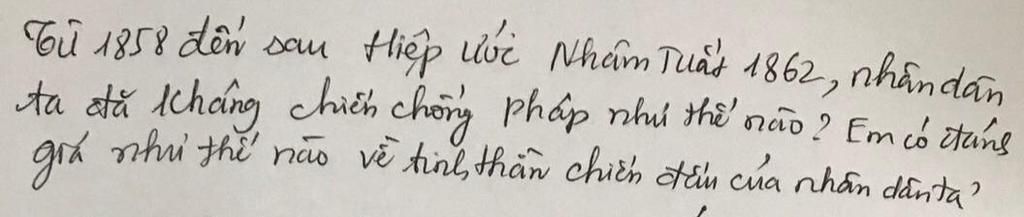 Từ 1858 đến sau Hiệp ước Nhâm Tuất 1862, nhân dân
ta đã kháng chiến chống Pháp như thế nào? Em có đánh
giá như thế nào về tinh thần chiến đấu của nhân dân ta?